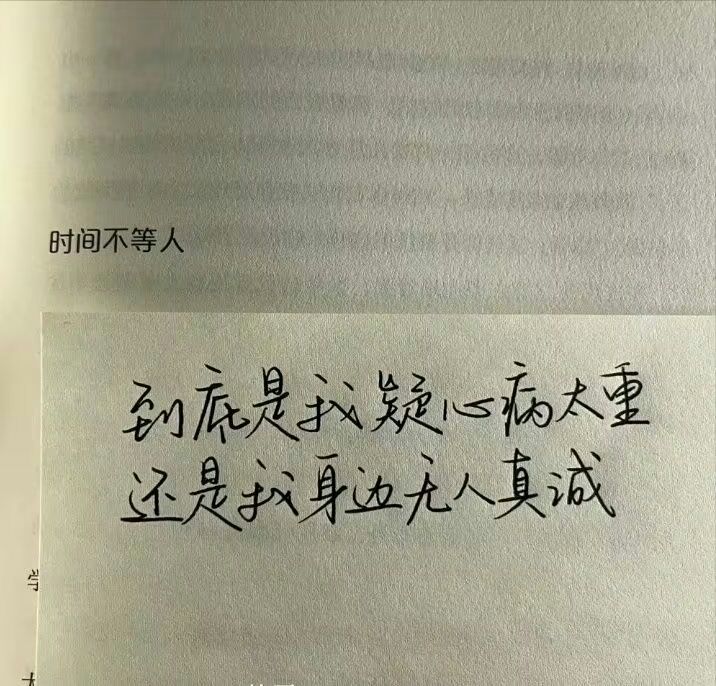 时间不等人
到底是我疑心病太重
还是我身边无人真诚
学